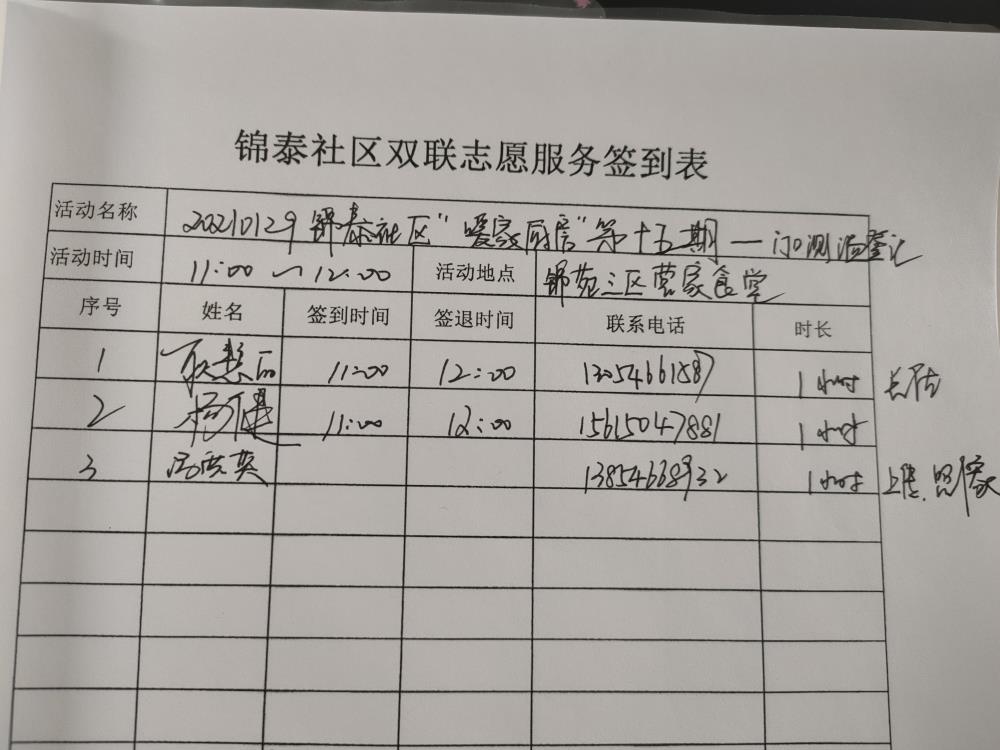 锦泰社区双联志愿服务签到表
活动名称 20210129 锦泰社区“暖家厨房”第十五期一门口测温登记
活动时间 11:00~12:00 活动地点 锦苑三区营家食堂
序号 姓名 签到时间 签退时间 联系电话 时长
1 11:00 12:00 13054661587 1小时
2 杨健 11:00 12:00 15615047881 1小时
3 1小时 上传.